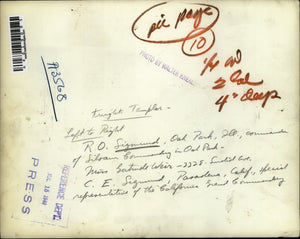 pic page
10
PHOTO BY WALTER
2 Col
4" deep
Knight Templar -
Left to Right
R. O. Sigmund, Oak Park, Ill., commander
of Siloam Commandery in Oak Park.
Miss Gertrude Weir - 2328
C. E. Sigmund, Pasadena, Calif., special
representative of the California Grand Commandery
REFERENCE DEPT.
PRESS